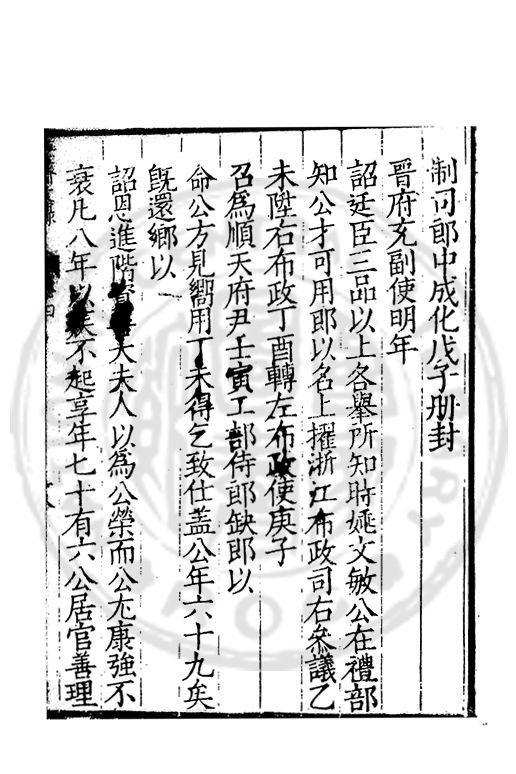 制司郎中成化戊子册封
晋府充副使明年
詔廷臣三品以上各舉所知時姚文敏公在禮部
知公才可用郎以名上擢浙江布政司右參議乙
未陞右布政丁酉轉左布政使庚子
召爲順天府尹壬寅工部侍郎缺郎以
命公方見嚮用丁未得乞致仕蓋公年六十九矣
旣還鄉以
詔恩進階資大夫人以爲公榮而公尤康強不
衰凡八年以疾不起享年七十有六公居官善理